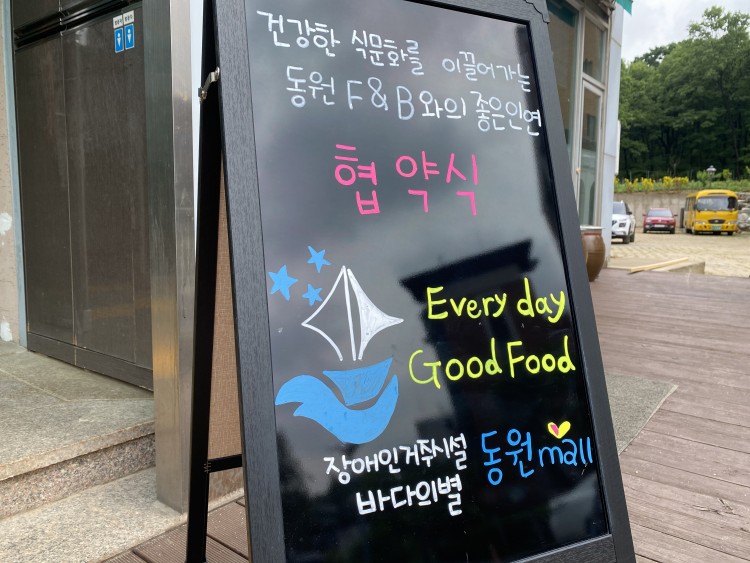 건강한 식문화를 이끌어가는
동원 F&B와의 좋은인연
협약식
Every day
Good Food
장애인거주시설
바다의별
동원mall